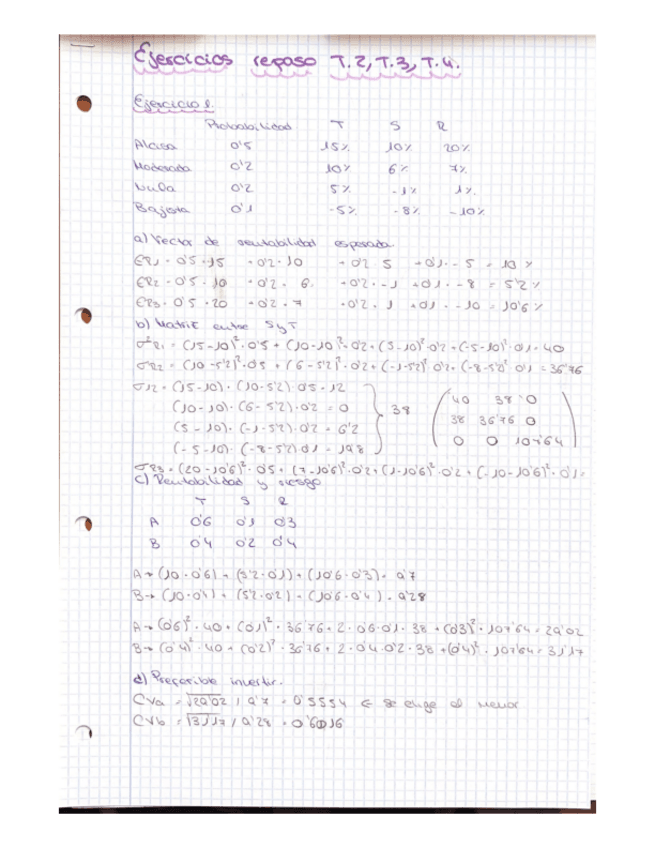 Ejercicios repaso T.2, T.3, T.4.
Ejercicio 1.
Probabilidad T S R
Alcista 0'5 15% 10% 20%
Moderada 0'2 10% 6% 7%
Nula 0'2 5% -1% 1%
Bajista 0'1 -5% -8% -10%
a) Vector de rentabilidad esperada.
ER1 = 0'5 · 15 + 0'2 · 10 + 0'2 · 5 + 0'1 · -5 = 10%
ER2 = 0'5 · 10 + 0'2 · 6 + 0'2 · -1 + 0'1 · -8 = 5'2%
ER3 = 0'5 · 20 + 0'2 · 7 + 0'2 · 1 + 0'1 · -10 = 10'6%
b) Matriz entre S y T
σ²R1 = (15-10)² · 0'5 + (10-10)² · 0'2 + (5-10)² · 0'2 + (-5-10)² · 0'1 = 40
σR2 = (10-5'2)² · 0'5 + (6-5'2)² · 0'2 + (-1-5'2)² · 0'2 + (-8-5'2)² · 0'1 = 36'76
σ12 = (15-10) · (10-5'2) · 0'5 = 12
(10-10) · (6-5'2) · 0'2 = 0
(5-10) · (-1-5'2) · 0'2 = 6'2
(-5-10) · (-8-5'2) · 0'1 = 19'8
38
40 38 0
38 36'76 0
0 0 107'64
σR3 = (20-10'6)² · 0'5 + (7-10'6)² · 0'2 + (1-10'6)² · 0'2 + (-10-10'6)² · 0'1 =
c) Rentabilidad y riesgo
T S R
A 0'6 0'1 0'3
B 0'4 0'2 0'4
A → (10 · 0'6) + (5'2 · 0'1) + (10'6 · 0'3) = 9'7
B → (10 · 0'4) + (5'2 · 0'2) + (10'6 · 0'4) = 9'28
A → (0'6)² · 40 + (0'1)² · 36'76 + 2 · 0'6 · 0'1 · 38 + (0'3)² · 107'64 = 29'02
B → (0'4)² · 40 + (0'2)² · 36'76 + 2 · 0'4 · 0'2 · 38 + (0'4)² · 107'64 = 31'17
d) Preferible invertir.
CVa = √29'02 / 9'7 = 0'5554 ← se elige el menor
CVb = √31'17 / 9'28 = 0'6016